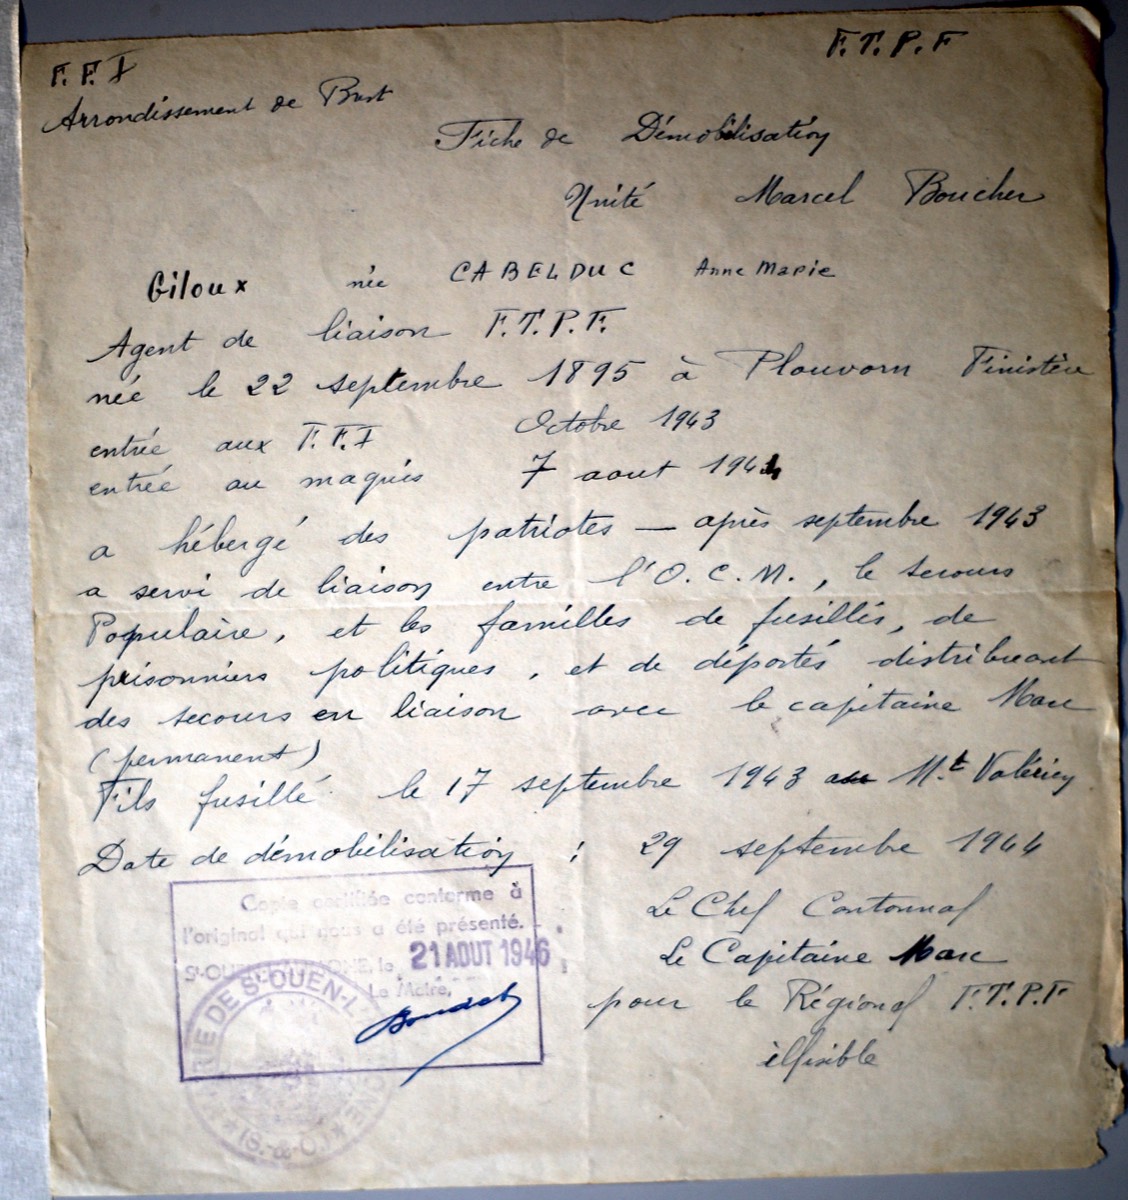 F.F.I
F.T.P.F
Arrondissement de Brest
Fiche de Démobilisation
Unité Marcel Boucher
Giloux née CABELDUC Anne Marie
Agent de liaison F.T.P.F.
née le 22 septembre 1895 à Plouvorn Finistère
entrée aux F.F.I Octobre 1943
entrée au maquis 7 aout 1944
a hébergé des patriotes — après septembre 1943
a servi de liaison entre l'O.C.M., le secours
Populaire, et les familles de fusillés, de
prisonniers politiques, et de déportés distribuant
des secours en liaison avec le capitaine Marc
(permanent)
Fils fusillé le 17 septembre 1943 au Mt Valérien
Date de démobilisation : 29 septembre 1944
Le Chef Cantonnal
Le Capitaine Marc
pour le Régional F.T.P.F
illisible
Copie certifiée conforme à
l'original qui nous a été présenté.
St-OUEN-L'AUMONE, le 21 AOUT 1946
Le Maire,
MAIRIE DE St-OUEN-L'AUMONE
★(S.-&-O.)★